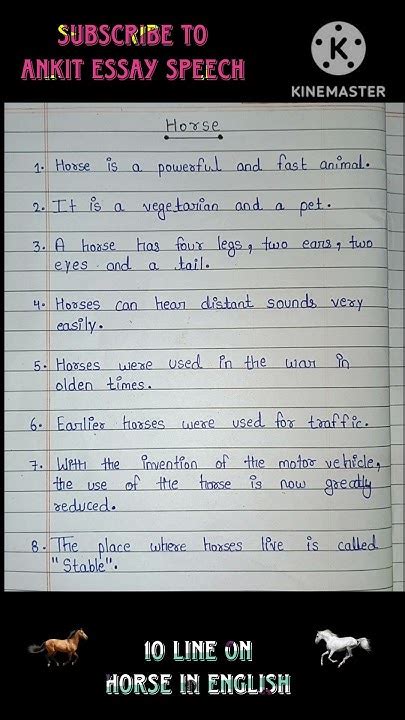 SUBSCRIBE TO
ANKIT ESSAY SPEECH
KINEMASTER
Horse
1. Horse is a powerful and fast animal.
2. It is a vegetarian and a pet.
3. A horse has four legs, two ears, two
eyes and a tail.
4. Horses can hear distant sounds very
easily.
5. Horses were used in the war in
olden times.
6. Earlier horses were used for traffic.
7. With the invention of the motor vehicle,
the use of the horse is now greatly
reduced.
8. The place where horses live is called
"Stable".
10 LINE ON
HORSE IN ENGLISH